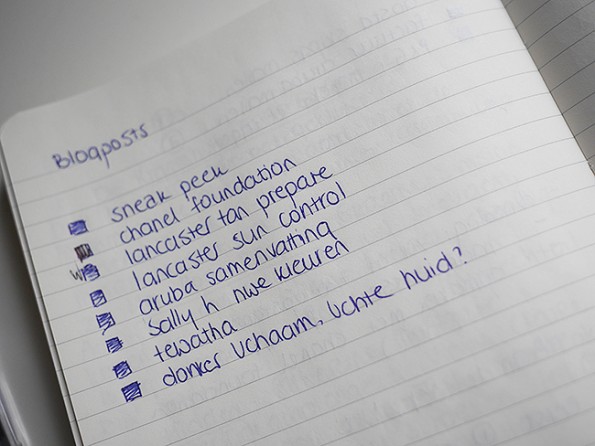 Blogposts
sneak peek
chanel foundation
lancaster tan prepare
lancaster sun control
aruba samenvatting
sally h nwe kleuren
tewatha
donker lichaam, lichte huid?